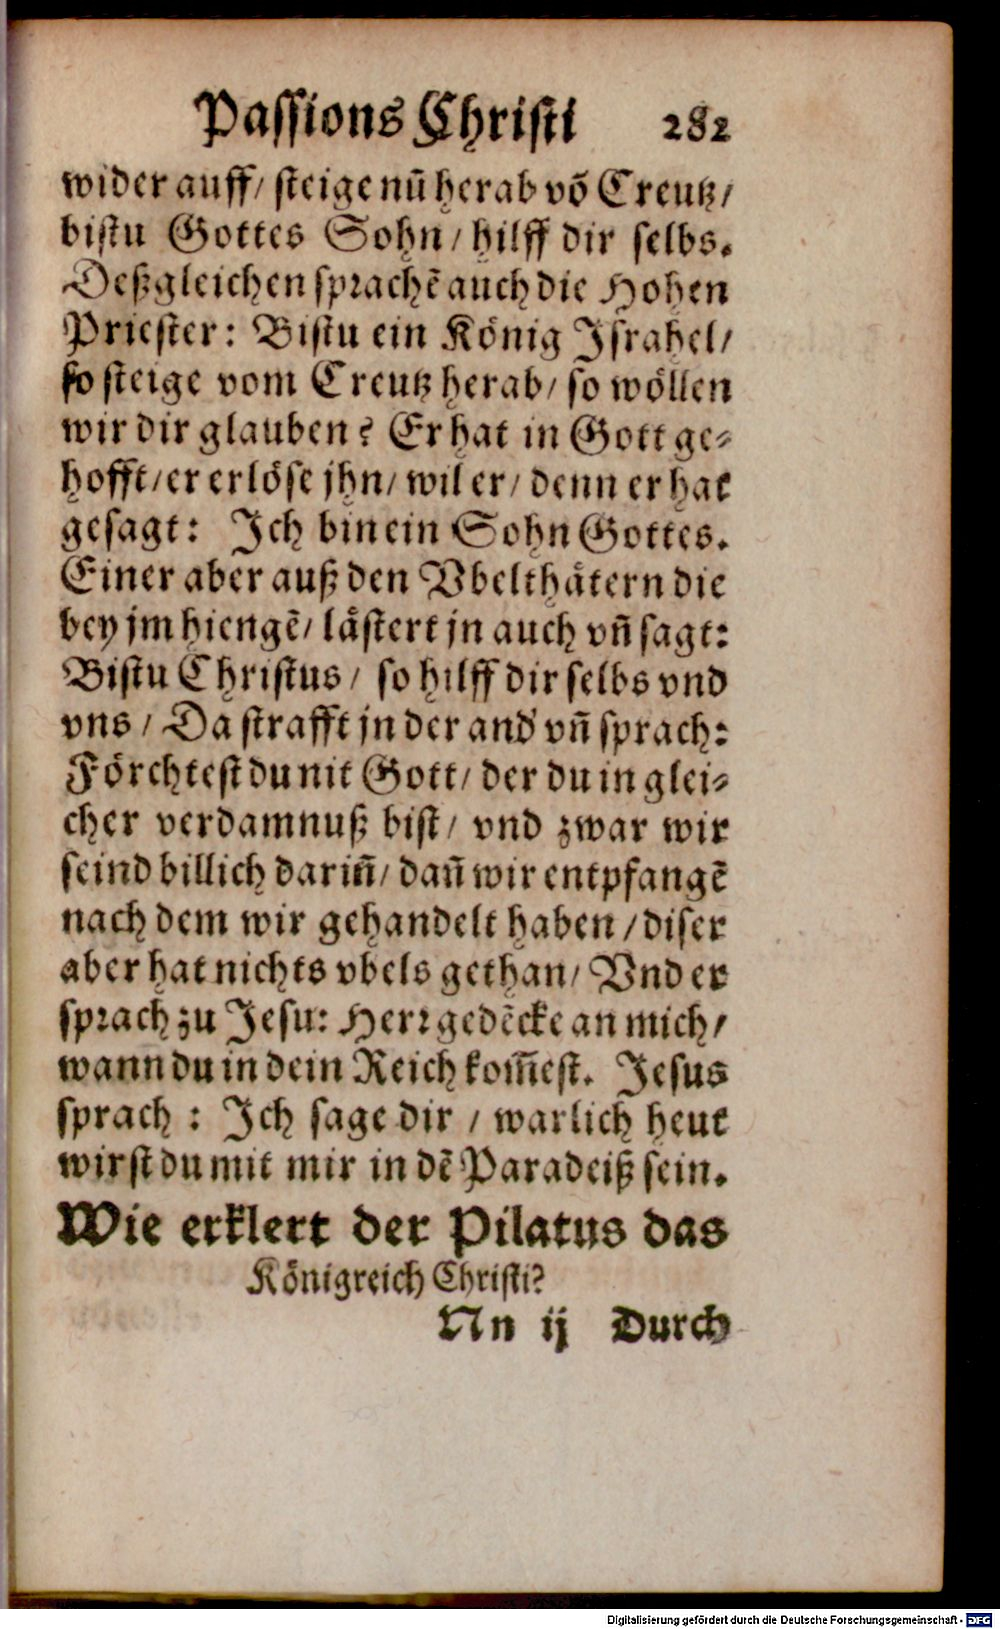 Passions Christi 282
wider auff/ steige nũ herab võ Creutz/
bistu Gottes Sohn/ hilff dir selbs.
Deßgleichen sprachẽ auch die Hohen
Priester: Bistu ein König Israhel/
so steige vom Creutz herab/ so wöllen
wir dir glauben? Er hat in Gott ge-
hofft/ er erlöse jhn/ wil er/ denn er hat
gesagt: Ich bin ein Sohn Gottes.
Einer aber auß den Vbelthätern die
bey jm hiengẽ/ lästert jn auch vñ sagt:
Bistu Christus/ so hilff dir selbs vnd
vns/ Da strafft jn der and' vñ sprach:
Förchtest du nit Gott/ der du in glei-
cher verdamnuß bist/ vnd zwar wir
seind billich dariñ/ dañ wir entpfangẽ
nach dem wir gehandelt haben/ diser
aber hat nichts vbels gethan/ Vnd er
sprach zu Jesu: Herr gedẽcke an mich/
wann du in dein Reich kom̃est. Jesus
sprach: Ich sage dir/ warlich heut
wirst du mit mir in dẽ Paradeiß sein.
Wie erklert der Pilatus das
Königreich Christi?
Nn ij Durch
Digitalisierung gefördert durch die Deutsche Forschungsgemeinschaft - DFG